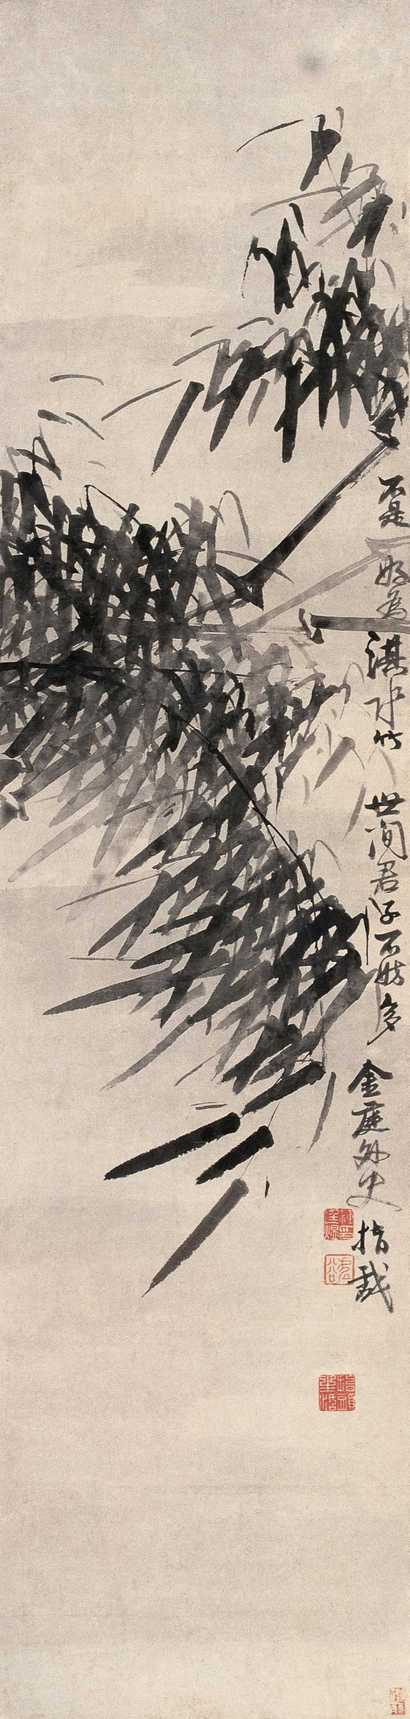 不是好為淇水竹世間君子不妨多金庭外史指戲